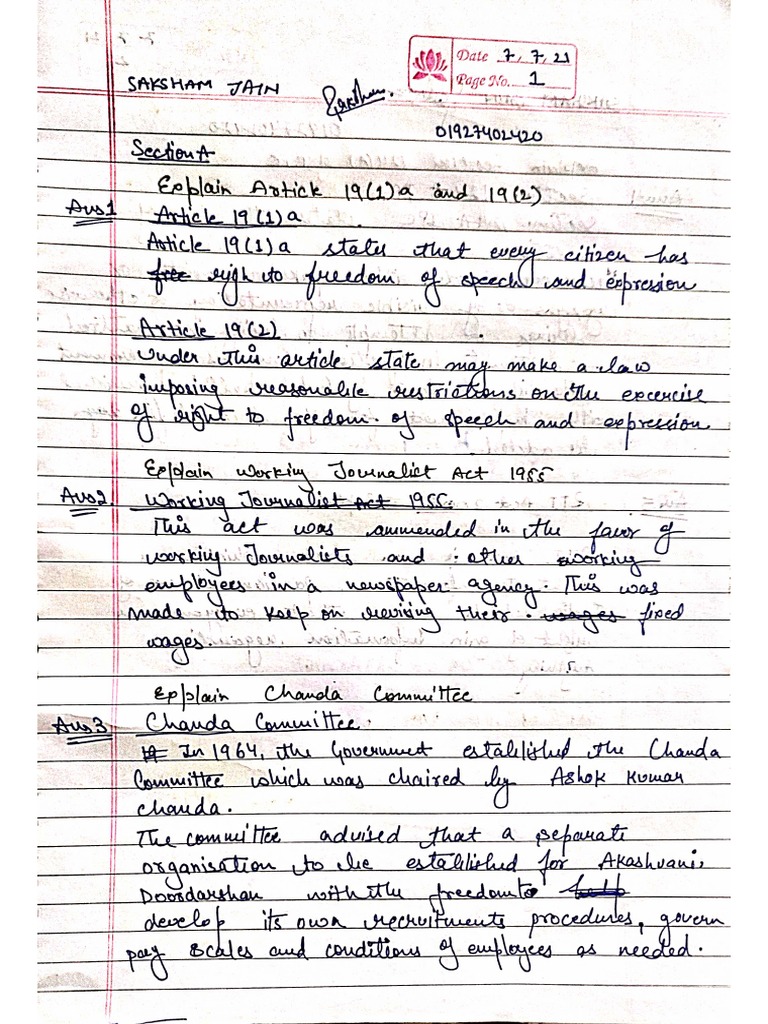 Date 7, 7, 21
Page No. 1
SAKSHAM JAIN
01927402420
Section A
Explain Article 19(1)a and 19(2)
Ans1 Article 19(1)a
Article 19(1)a states that every citizen has
free righ to freedom of speech and expression
Article 19(2)
Under this article state may make a law
imposing reasonable restrictions on the excercise
of right to freedom of speech and expression
Explain working Journalist Act 1955
Ans2. Working Journalist Act 1955.
This act was ammended in the favor of
working Journalists and other working
employees in a newspaper agency. This was
made to keep on revising their wages fixed
wages.
Explain Chanda Committee
Ans3 Chanda Committee.
In 1964, the Government established the Chanda
Committee which was chaired by Ashok Kumar
Chanda.
The committee advised that a separate
organisation to be established for Akashvani,
Doordarshan with the freedom to help
develop its own recruitments procedures, govern
pay scales and conditions of employees as needed.